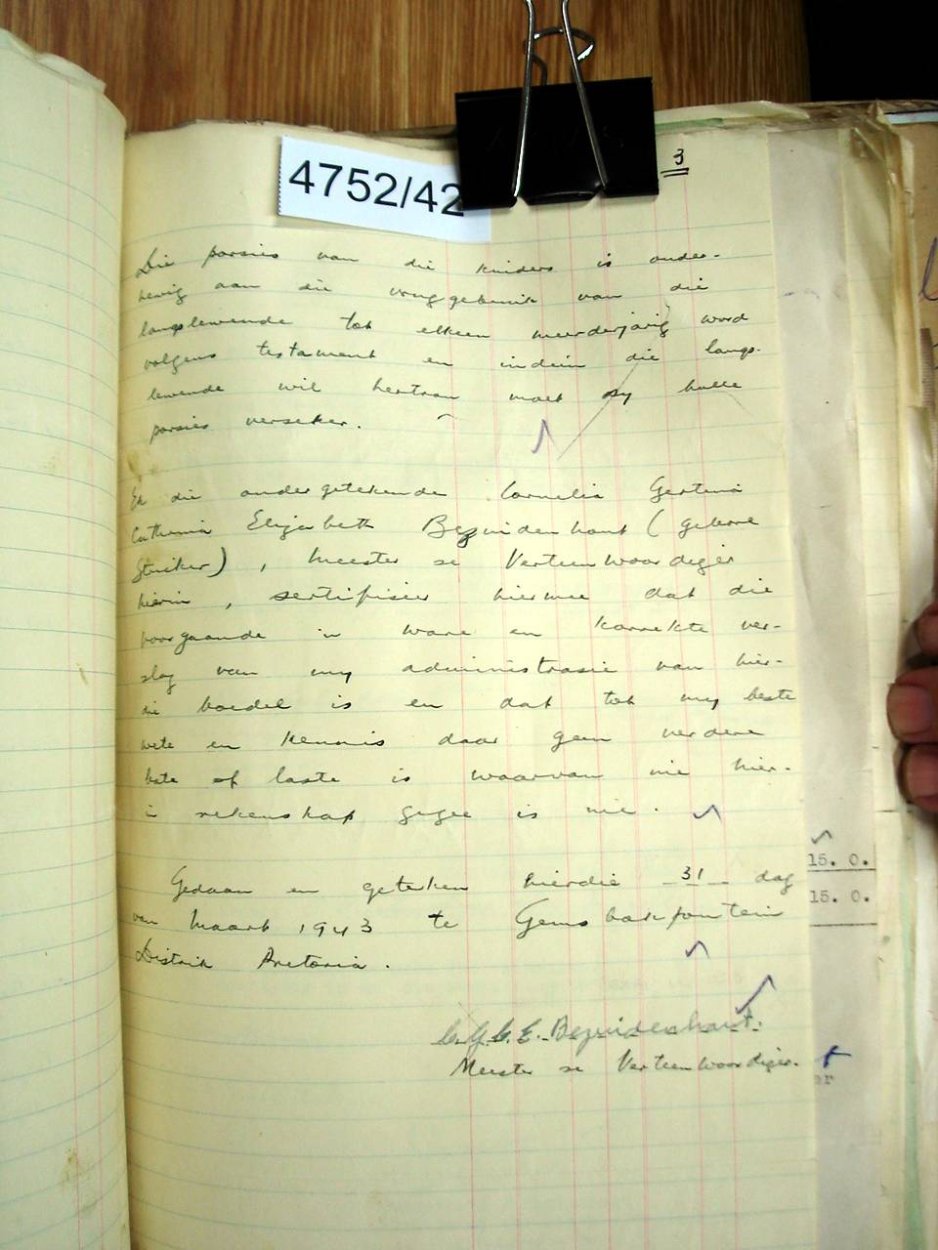 4752/42
3
Die porsies van die kinders is onder-
hewig aan die vruggebruik van die
langslewende tot elkeen meerderjarig word
volgens testament en indien die langs-
lewende wil hertrou moet sy hulle
porsies verseker.
Ek die ondergetekende Cornelia Gertina
Catherina Elizabeth Bezuidenhout (gebore
), Meester se Verteenwoordiger
hierin, sertifiseer hiermee dat die
voorgaande 'n ware en korrekte ver-
slag van my administrasie van hier-
die boedel is en dat tot my beste
wete en kennis daar geen verdere
bate of laste is waarvan nie hier-
in rekenskap gegee is nie.
Gedaan en geteken hierdie 31 dag
van Maart 1943 te Gemsbokfontein
Distrik Pretoria.
C.G.C.E. Bezuidenhout.
Meester se Verteenwoordiger.
15. 0.
15. 0.
er